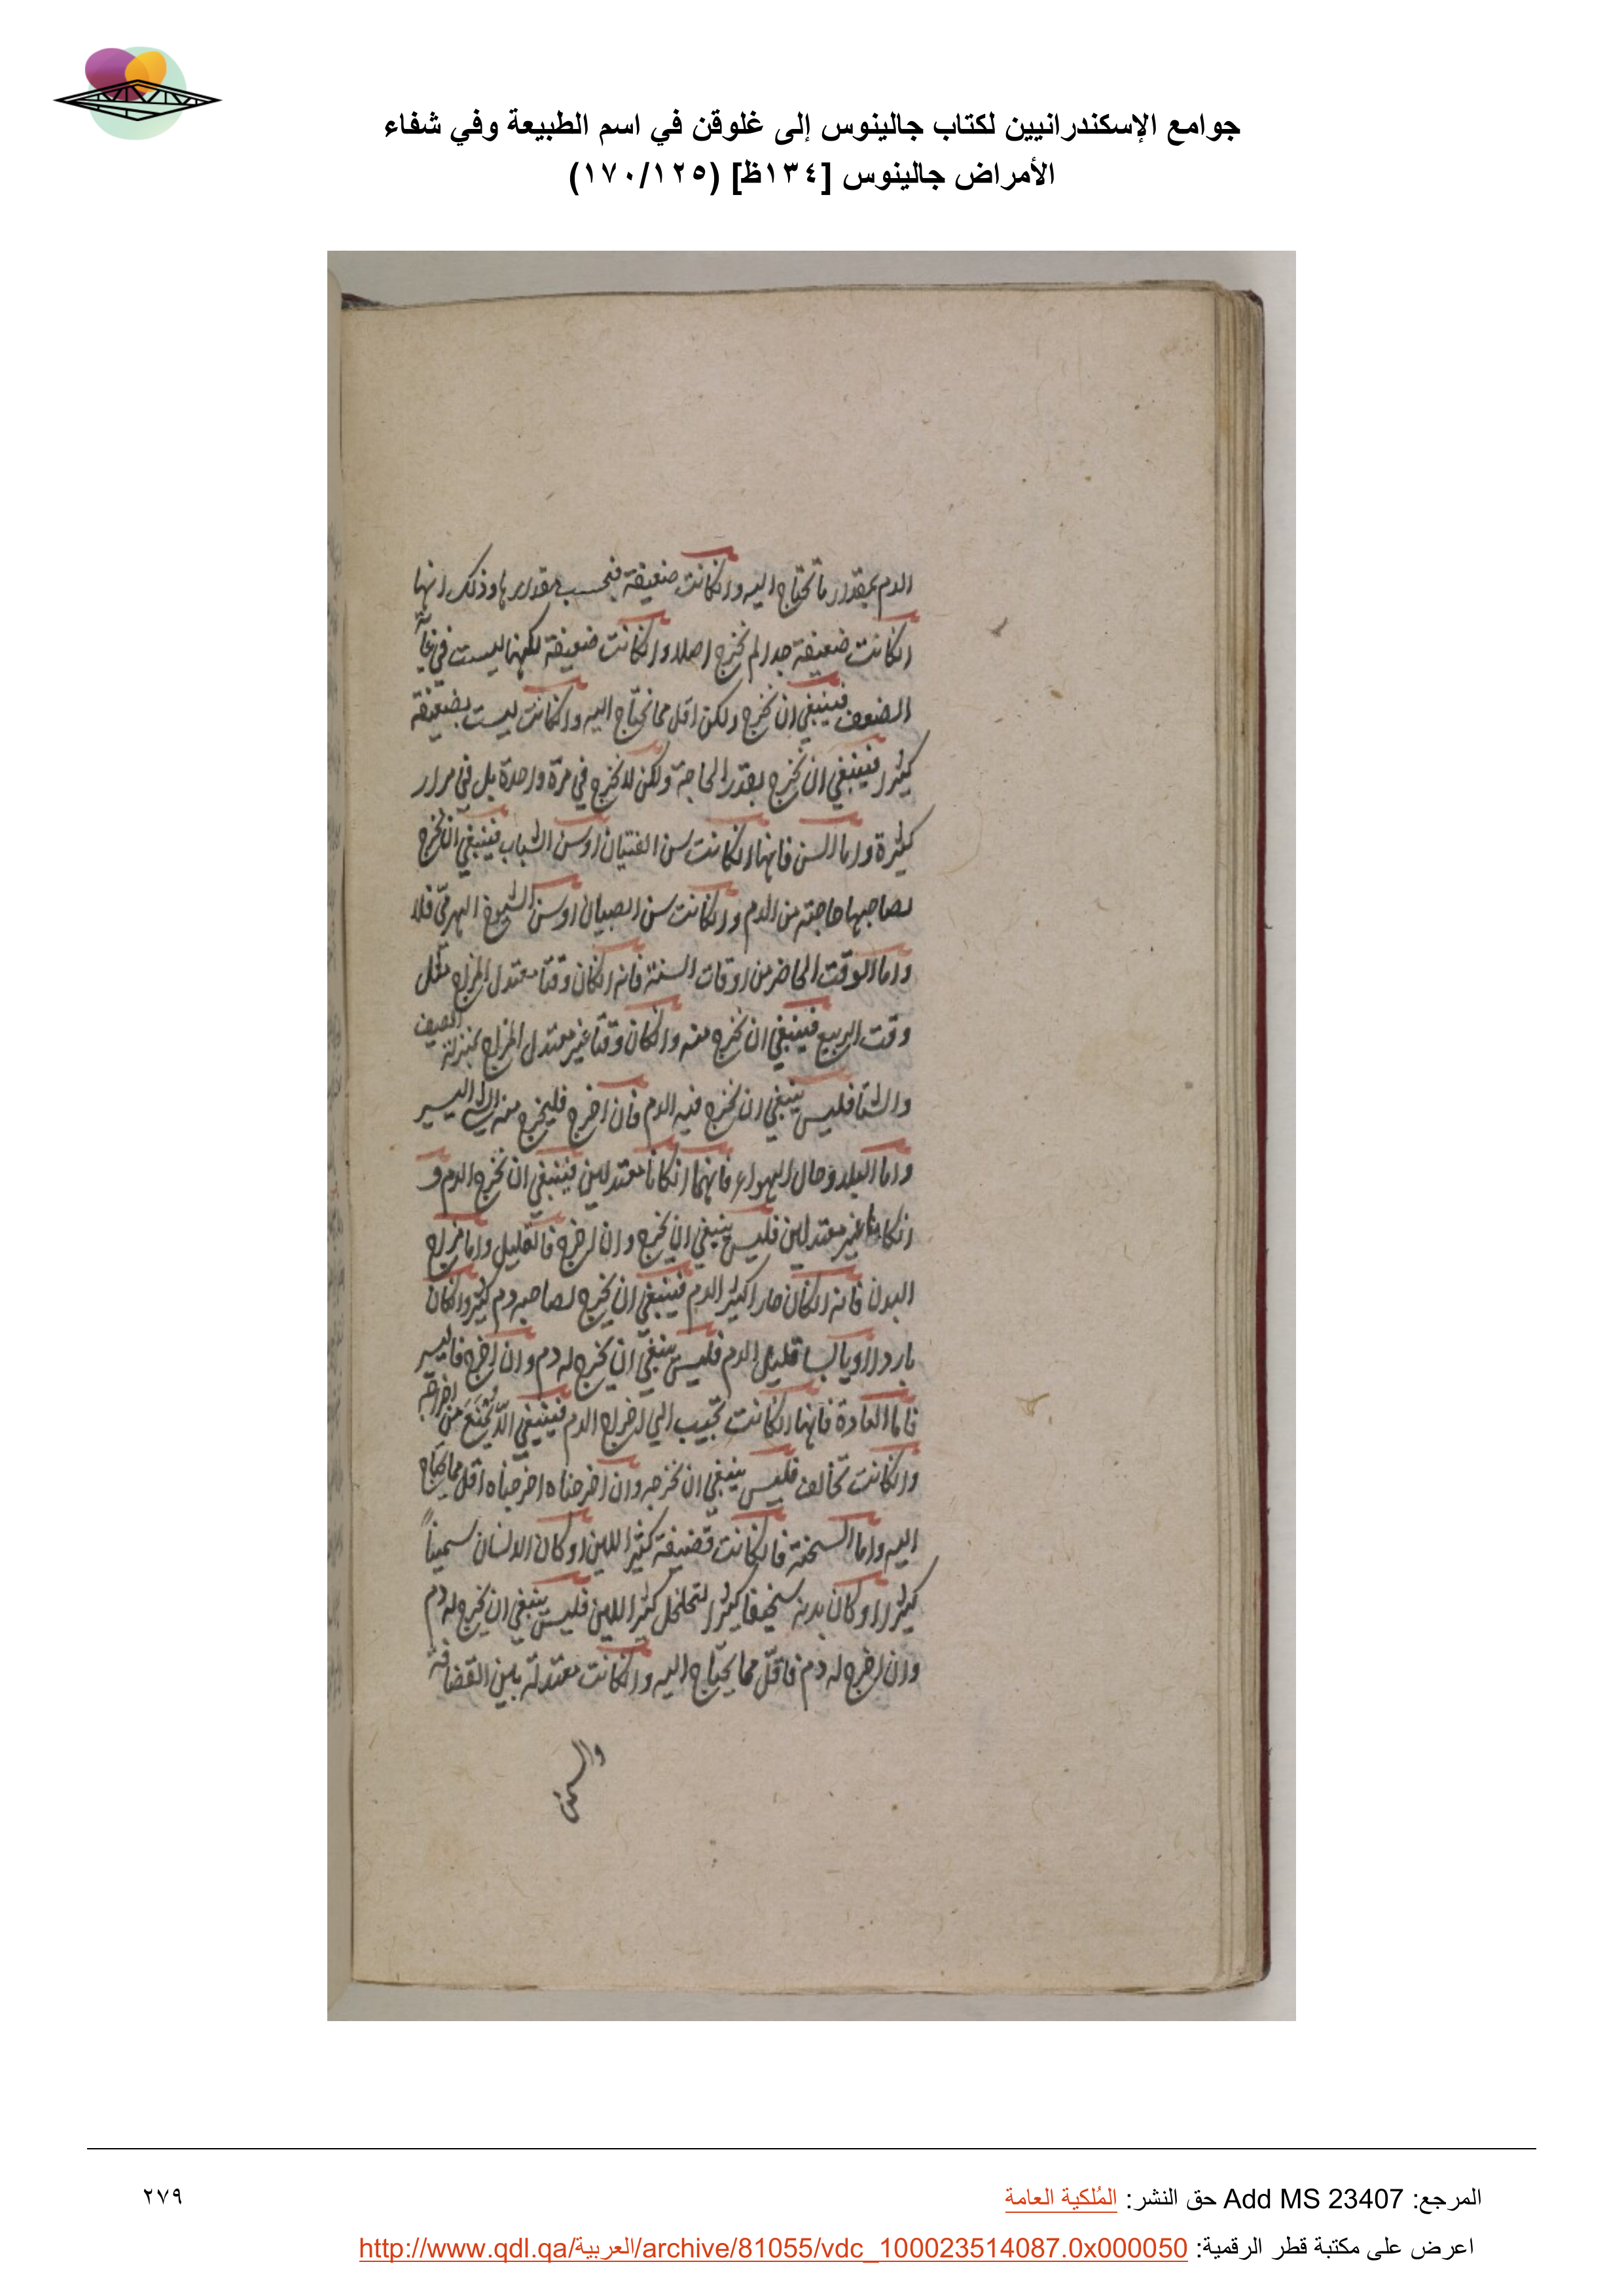 جوامع الإسكندرانيين لكتاب جالينوس إلى غلوقن في اسم الطبيعة وفي شفاء
الأمراض جالينوس [١٣٤ظ] (١٧٠/١٢٥)
الدم بمقدار ما تحتاج اليه وان كانت ضعيفة فبحسب مقدارها وذلك انها
ان كانت ضعيفة جدا لم نخرج اصلا وان كانت ضعيفة لكنها ليست في غاية
الضعف فينبغي ان نخرج ولكن اقل مما نحتاج اليه وان كانت ليست بضعيفة
كثيرا فينبغي ان نخرج بقدر الحاجة ولكن لا نخرج في مرة واحدة بل في مرار
كثيرة واما السن فانها ان كانت سن الفتيان او سن الشباب فينبغي ان نخرج
لصاحبها حاجته من الدم وان كانت سن الصبيان او سن الشيوخ الهرمى فلا
واما الوقت الحاضر من اوقات السنة فانه ان كان وقتا معتدل المزاج مثل
وقت الربيع فينبغي ان نخرج منه وان كان وقتا غير معتدل المزاج بمنزلة الصيف
والشتا فليس ينبغي ان نخرج فيه الدم فان اخرج فليخرج منه الشي اليسير
واما البلد وحال الهواء فانهما ان كانا معتدلين فينبغي ان نخرج الدم و
ان كانا غير معتدلين فليس ينبغي ان يخرج وان اخرج فالقليل واما مزاج
البدن فانه ان كان حارا كثير الدم فينبغي ان يخرج لصاحبه دم كثير وان كان
باردا او يابسا قليل الدم فليس ينبغي ان يخرج له دم وان اخرج فاليسير
فاما العادة فانها ان كانت تجيب الي اخراج الدم فينبغي الّا يمتنع من اخراجه
وان كانت تخالف فليس ينبغي ان نخرجه وان اخرجناه اخرجناه اقل مما يحتاج
اليه واما السحنة فان كانت قضيفة كثير اللين او كان الانسان سمينا
كثيرا او كان بدنه سخيفا كثير التحلحل كثير اللين فليس ينبغي ان يخرج له دم
وان اخرج له دم فاقل مما يحتاج اليه وان كانت معتدلة بين القضافة
والسمن
المرجع: Add MS 23407 حق النشر: المُلكية العامة
٢٧٩
اعرض على مكتبة قطر الرقمية: http://www.qdl.qa/العربية/archive/81055/vdc_100023514087.0x000050